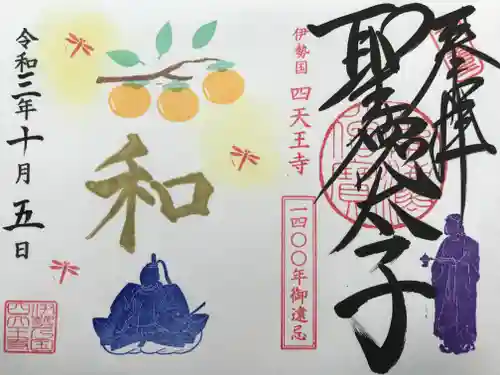 奉拝
聖徳太子
伊勢国 四天王寺
一四〇〇年御遺忌
和
令和三年十月五日